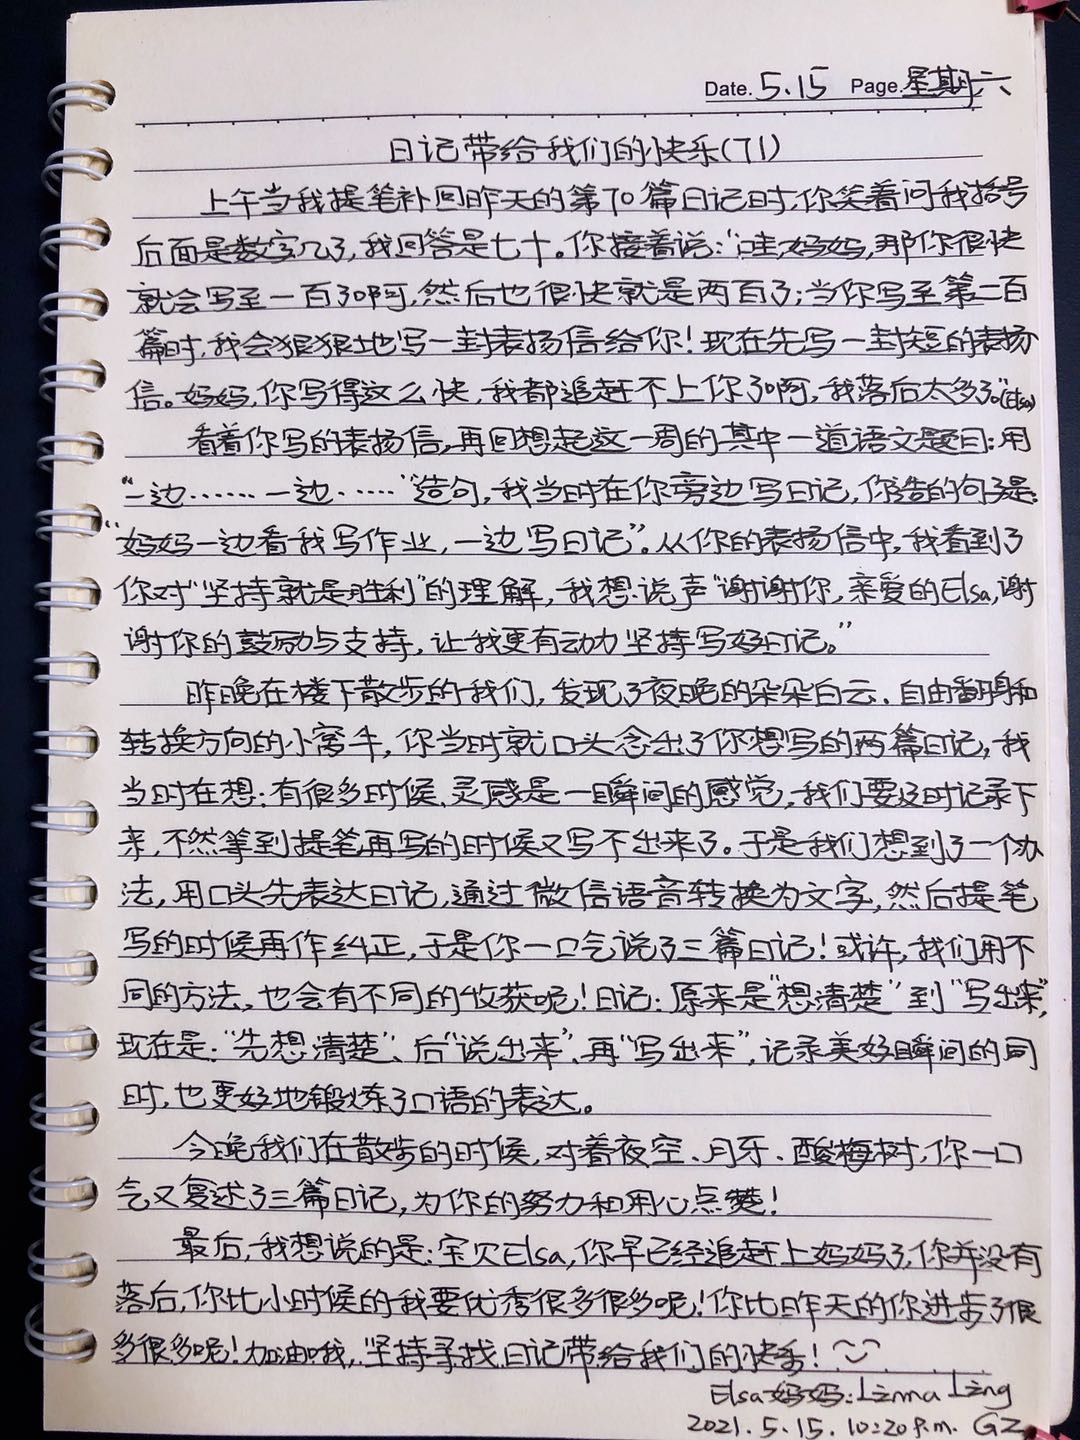 Date. 5.15 Page. 星期六
日记带给我们的快乐(71)
上午当我提笔补回昨天的第70篇日记时,你笑着问我括号
后面是数字几了,我回答是七十。你接着说:“哇,妈妈,那你很快
就会写至一百了啊,然后也很快就是两百了;当你写至第二百
篇时,我会狠狠地写一封表扬信给你!现在先写一封短的表扬
信。妈妈,你写得这么快,我都追赶不上你了啊,我落后太多了。”(Elsa)
看着你写的表扬信,再回想起这一周的其中一道语文题目:用
“一边……一边……”造句,我当时在你旁边写日记,你造的句子是:
“妈妈一边看我写作业,一边写日记”。从你的表扬信中,我看到了
你对“坚持就是胜利”的理解,我想说声“谢谢你,亲爱的Elsa,谢
谢你的鼓励与支持,让我更有动力坚持写好日记。”
昨晚在楼下散步的我们,发现了夜晚的朵朵白云、自由翻身和
转换方向的小窝牛,你当时就口头念出了你想写的两篇日记,我
当时在想:有很多时候,灵感是一瞬间的感觉,我们要及时记录下
来,不然等到提笔再写的时候又写不出来了。于是我们想到了一个办
法,用口头先表达日记,通过微信语音转换为文字,然后提笔
写的时候再作纠正,于是你一口气说了三篇日记!或许,我们用不
同的方法,也会有不同的收获呢!日记:原来是“想清楚”到“写出来”,
现在是:“先想清楚”、后“说出来”、再“写出来”,记录美好瞬间的同
时,也更好地锻炼了口语的表达。
今晚我们在散步的时候,对着夜空、月牙、酸梅树,你一口
气又复述了三篇日记,为你的努力和用心点赞!
最后,我想说的是:宝贝Elsa,你早已经追赶上妈妈了,你并没有
落后,你比小时候的我要优秀很多很多呢!你比昨天的你进步了很
多很多呢!加油哦,坚持寻找日记带给我们的快乐!
Elsa妈妈:Linna Ling
2021.5.15. 10:20 P.m. GZ